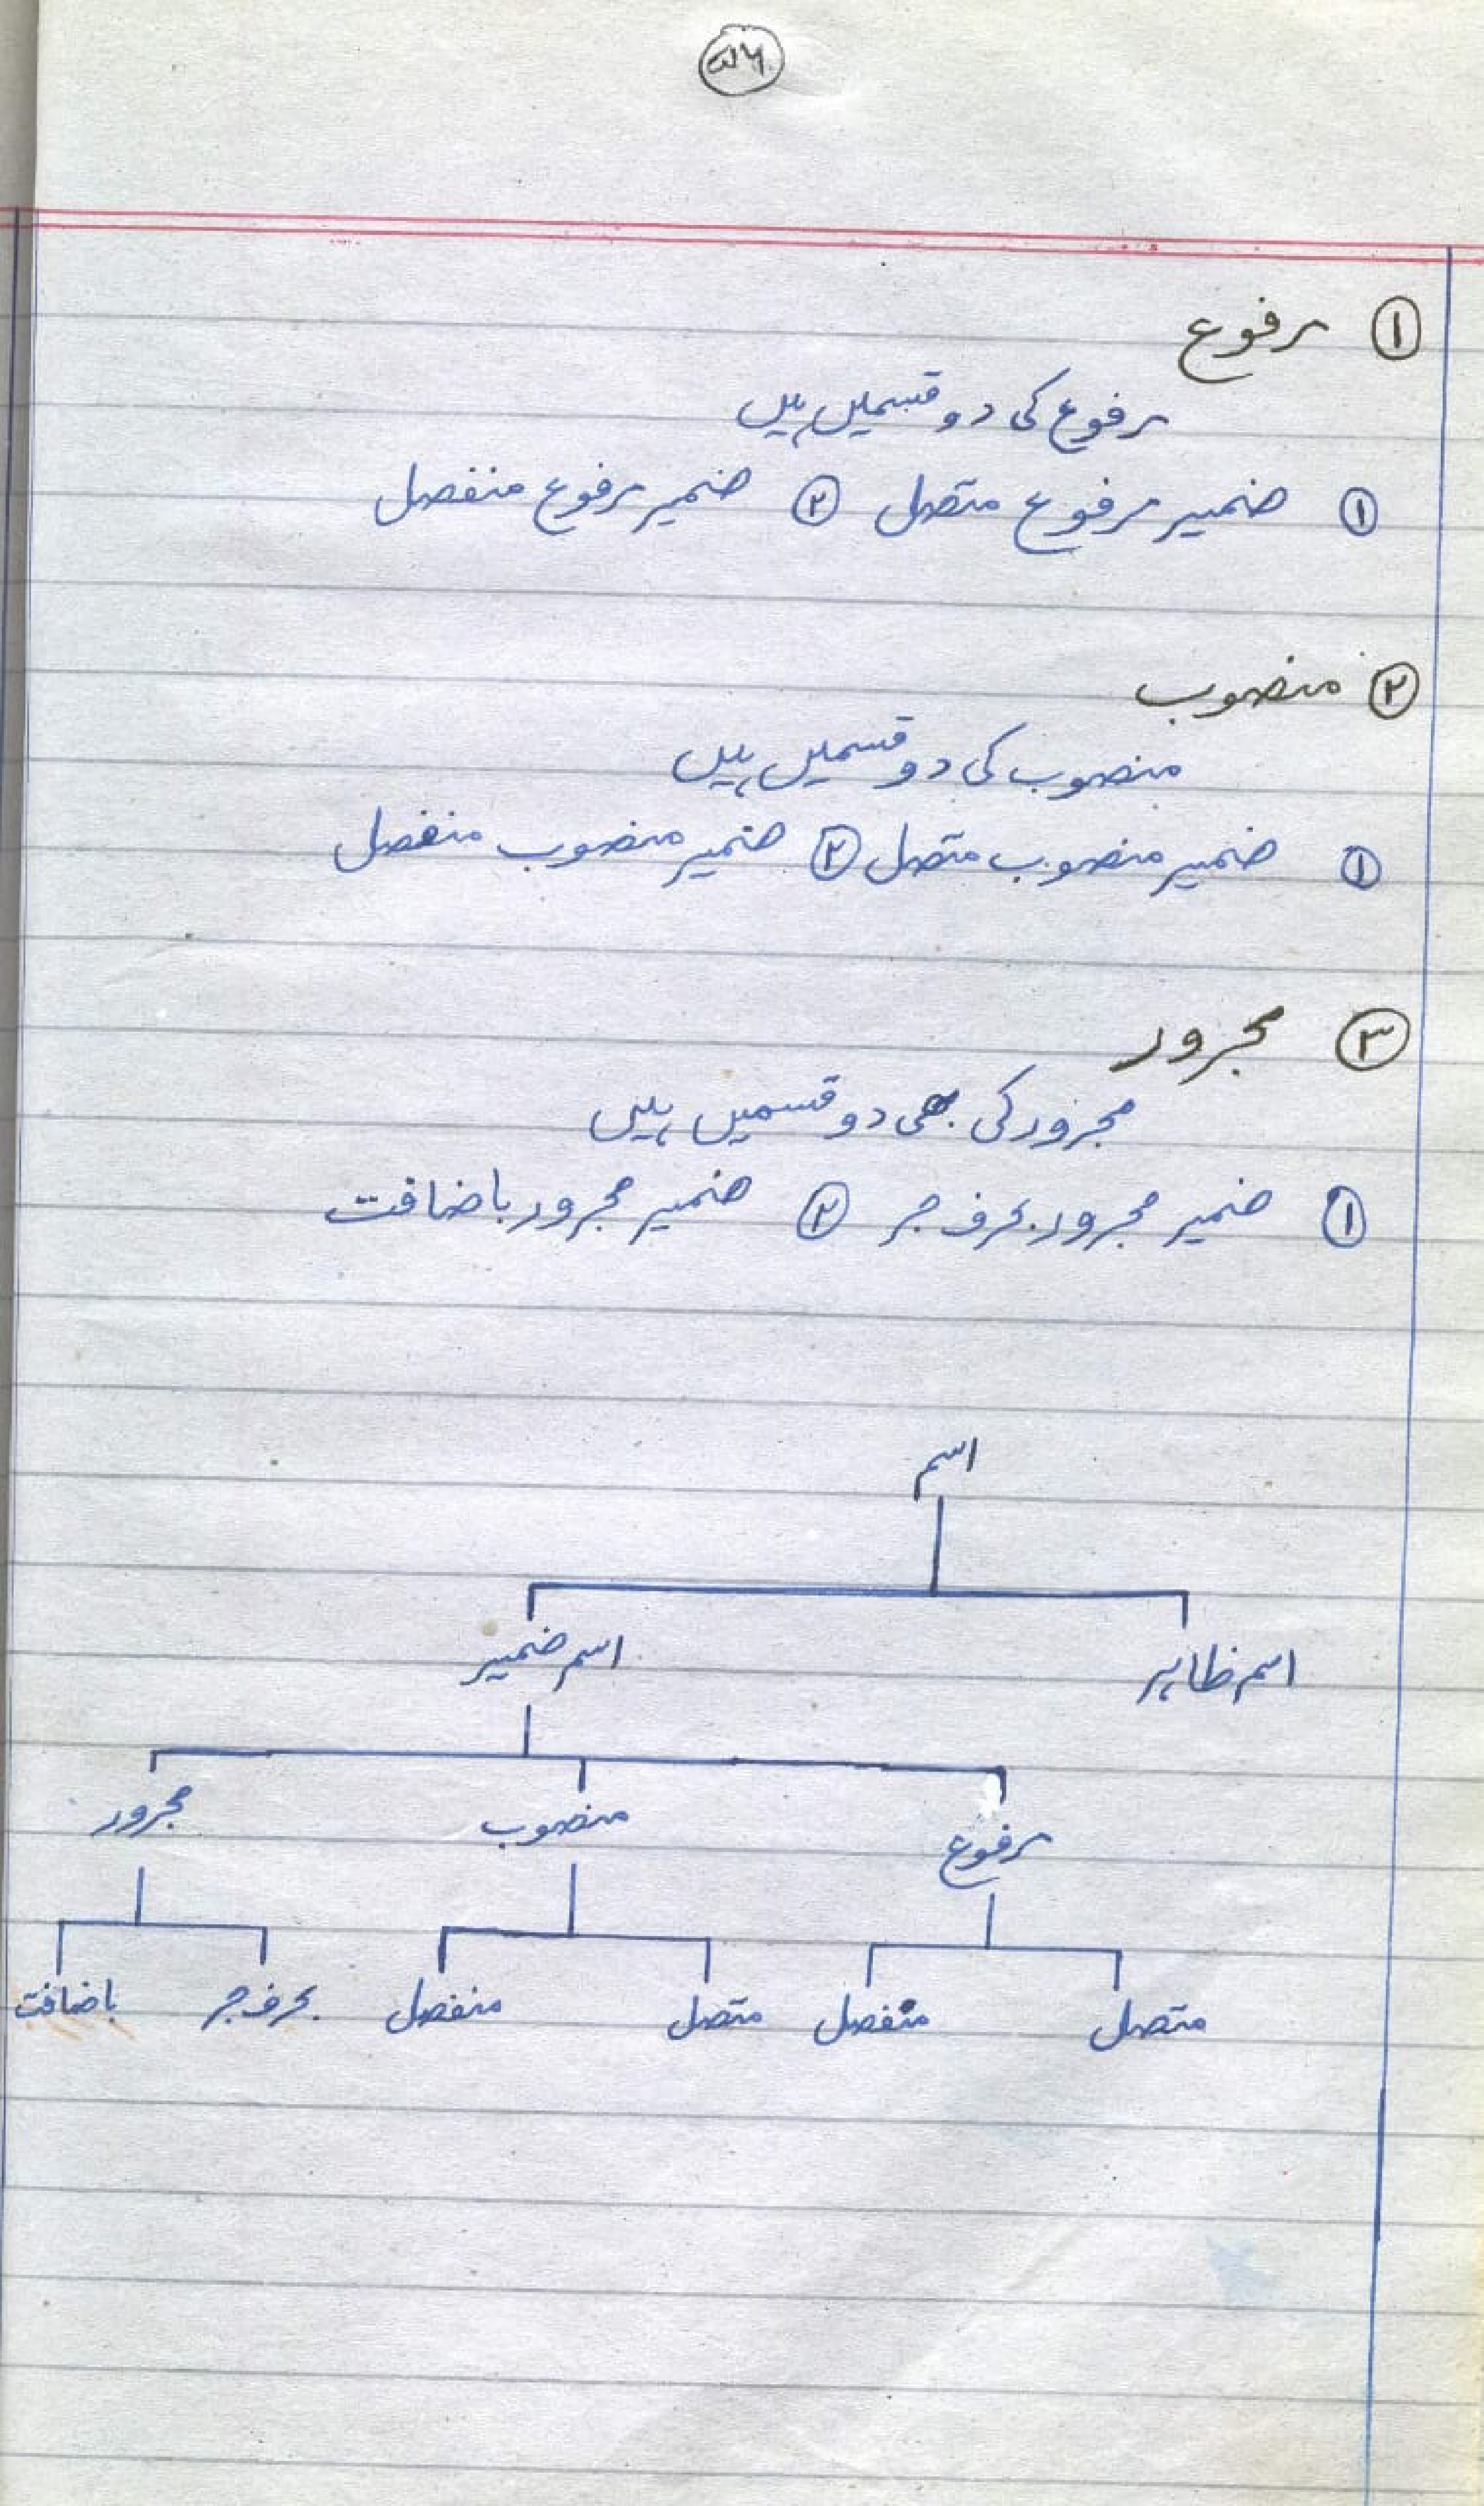 ① مرفوع
مرفوع کی دو قسمیں ہیں
① ضمیر مرفوع متصل ② ضمیر مرفوع منفصل
② منصوب
منصوب کی دو قسمیں ہیں
① ضمیر منصوب متصل ② ضمیر منصوب منفصل
③ مجرور
مجرور کی بھی دو قسمیں ہیں
① ضمیر مجرور بحرف جر ② ضمیر مجرور باضافت
اسم
اسم ظاہر اسم ضمیر
مرفوع منصوب مجرور
متصل منفصل متصل منفصل بحرف جر باضافت